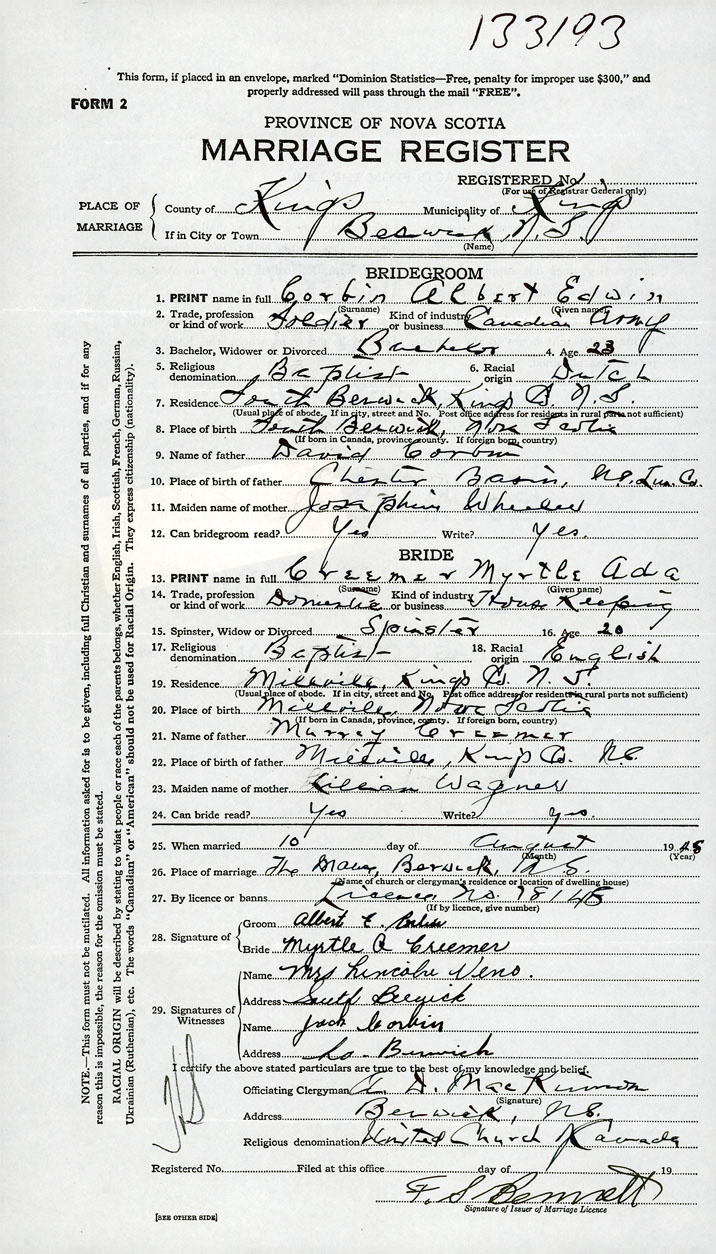 133193
This form, if placed in an envelope, marked “Dominion Statistics—Free, penalty for improper use $300,” and
properly addressed will pass through the mail “FREE”.
FORM 2
PROVINCE OF NOVA SCOTIA
MARRIAGE REGISTER
REGISTERED No.
(For use of Registrar General only)
PLACE OF MARRIAGE
County of Kings Municipality of Kings
If in City or Town Berwick, N.S.
(Name)
BRIDEGROOM
1. PRINT name in full Corbin Albert Edwin
(Surname) (Given name)
2. Trade, profession or kind of work Soldier Kind of industry or business Canadian Army
3. Bachelor, Widower or Divorced Bachelor 4. Age 23
5. Religious denomination Baptist 6. Racial origin Dutch
7. Residence South Berwick, Kings Co. N.S.
(Usual place of abode. If in city, street and No. Post office address for residents in rural parts not sufficient)
8. Place of birth South Berwick, Nova Scotia
(If born in Canada, province, county. If foreign born, country)
9. Name of father David Corbin
10. Place of birth of father Chester Basin, N.S. Lun. Co.
11. Maiden name of mother Josephine Wheeler
12. Can bridegroom read? Yes Write? Yes.
BRIDE
13. PRINT name in full Creemer Myrtle Ada
(Surname) (Given name)
14. Trade, profession or kind of work Domestic Kind of industry or business House Keeping
15. Spinster, Widow or Divorced Spinster 16. Age 20
17. Religious denomination Baptist 18. Racial origin English
19. Residence Millville, Kings Co. N.S.
(Usual place of abode. If in city, street and No. Post office address for residents in rural parts not sufficient)
20. Place of birth Millville, Nova Scotia
(If born in Canada, province, county. If foreign born, country)
21. Name of father Murray Creemer
22. Place of birth of father Millville, Kings Co. N.S.
23. Maiden name of mother Lillian Wagner
24. Can bride read? Yes Write? yes.
25. When married 10 day of August 1945
(Month) (Year)
26. Place of marriage The Manse, Berwick, N.S.
(Name of church or clergyman's residence or location of dwelling house)
27. By licence or banns Licence No.
(If by licence, give number)
28. Signature of
Groom Albert E Corbin
Bride Myrtle A Creemer
29. Signatures of Witnesses
Name Mrs Lincoln Veno.
Address South Berwick
Name Jack Corbin
Address So. Berwick
I certify the above stated particulars are true to the best of my knowledge and belief.
Officiating Clergyman A. D. MacKinnon
(Signature)
Address Berwick, N.S.
Religious denomination United Church of Canada
Registered No. Filed at this office day of 19
F. S. Bennett
Signature of Issuer of Marriage Licence
[SEE OTHER SIDE]
NOTE.—This form must not be mutilated. All information asked for is to be given, including full Christian and surnames of all parties, and if for any
reason this is impossible, the reason for the omission must be stated.
RACIAL ORIGIN will be described by stating to what people or race each of the parents belongs, whether English, Irish, Scottish, French, German, Russian,
Ukrainian (Ruthenian), etc. The words “Canadian” or “American” should not be used for Racial Origin. They express citizenship (nationality).